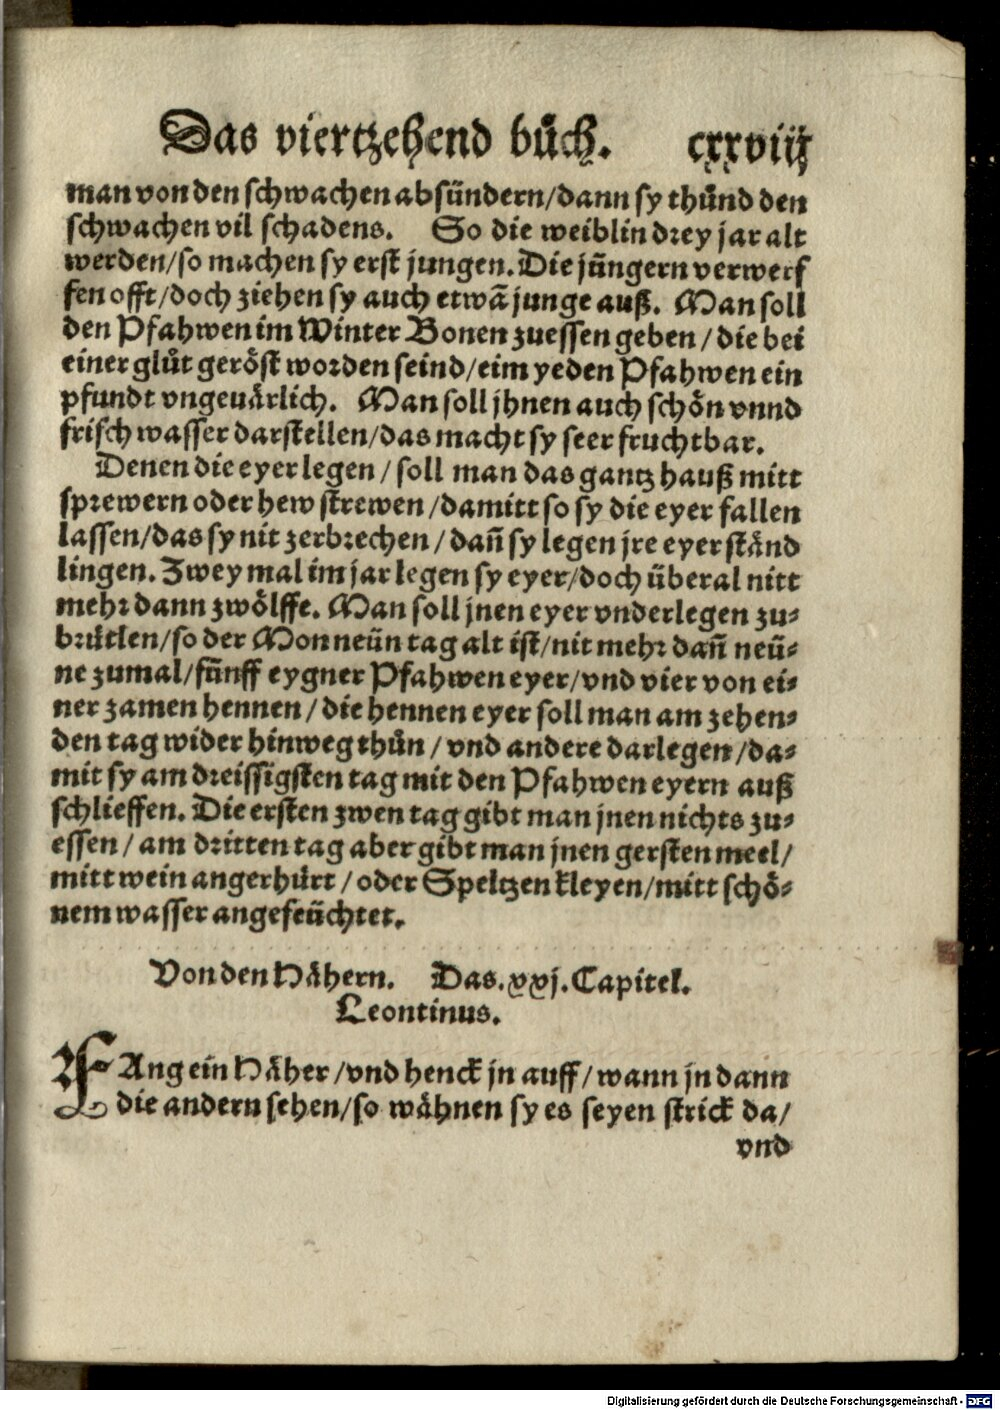 Das viertzehend bůch. cxxviij
man von den schwachen absündern/dann sy thůnd den
schwachen vil schadens. So die weiblin drey jar alt
werden/so machen sy erst jungen. Die jüngern verwerf
fen offt/doch ziehen sy auch etwã junge auß. Man soll
den Pfahwen im Winter Bonen zuessen geben/die bei
einer glůt geröst worden seind/eim yeden Pfahwen ein
pfundt vngeuårlich. Man soll jhnen auch schön vnnd
frisch wasser darstellen/das macht sy seer fruchtbar.
Denen die eyer legen/soll man das gantz hauß mitt
sprewern oder hew strewen/damitt so sy die eyer fallen
lassen/das sy nit zerbrechen/dañ sy legen jre eyer ständ
lingen. Zwey mal im jar legen sy eyer/doch überal nitt
mehr dann zwölffe. Man soll jnen eyer vnderlegen zu-
brütlen/so der Mon neün tag alt ist/nit mehr dañ neü-
ne zumal/fünff eygner Pfahwen eyer/vnd vier von ei-
ner zamen hennen/die hennen eyer soll man am zehen-
den tag wider hinweg thůn/vnd andere darlegen/da-
mit sy am dreissigsten tag mit den Pfahwen eyern auß
schlieffen. Die ersten zwen tag gibt man jnen nichts zu-
essen/am dritten tag aber gibt man jnen gersten meel/
mitt wein angerhürt/oder Speltzen kleyen/mitt schö-
nem wasser angefeüchtet.
Von den Hähern. Das.xxj.Capitel.
Leontinus.
FAng ein Häher/vnd henck jn auff/wann jn dann
die andern sehen/so wähnen sy es seyen strick da/
vnd
Digitalisierung gefördert durch die Deutsche Forschungsgemeinschaft - DFG